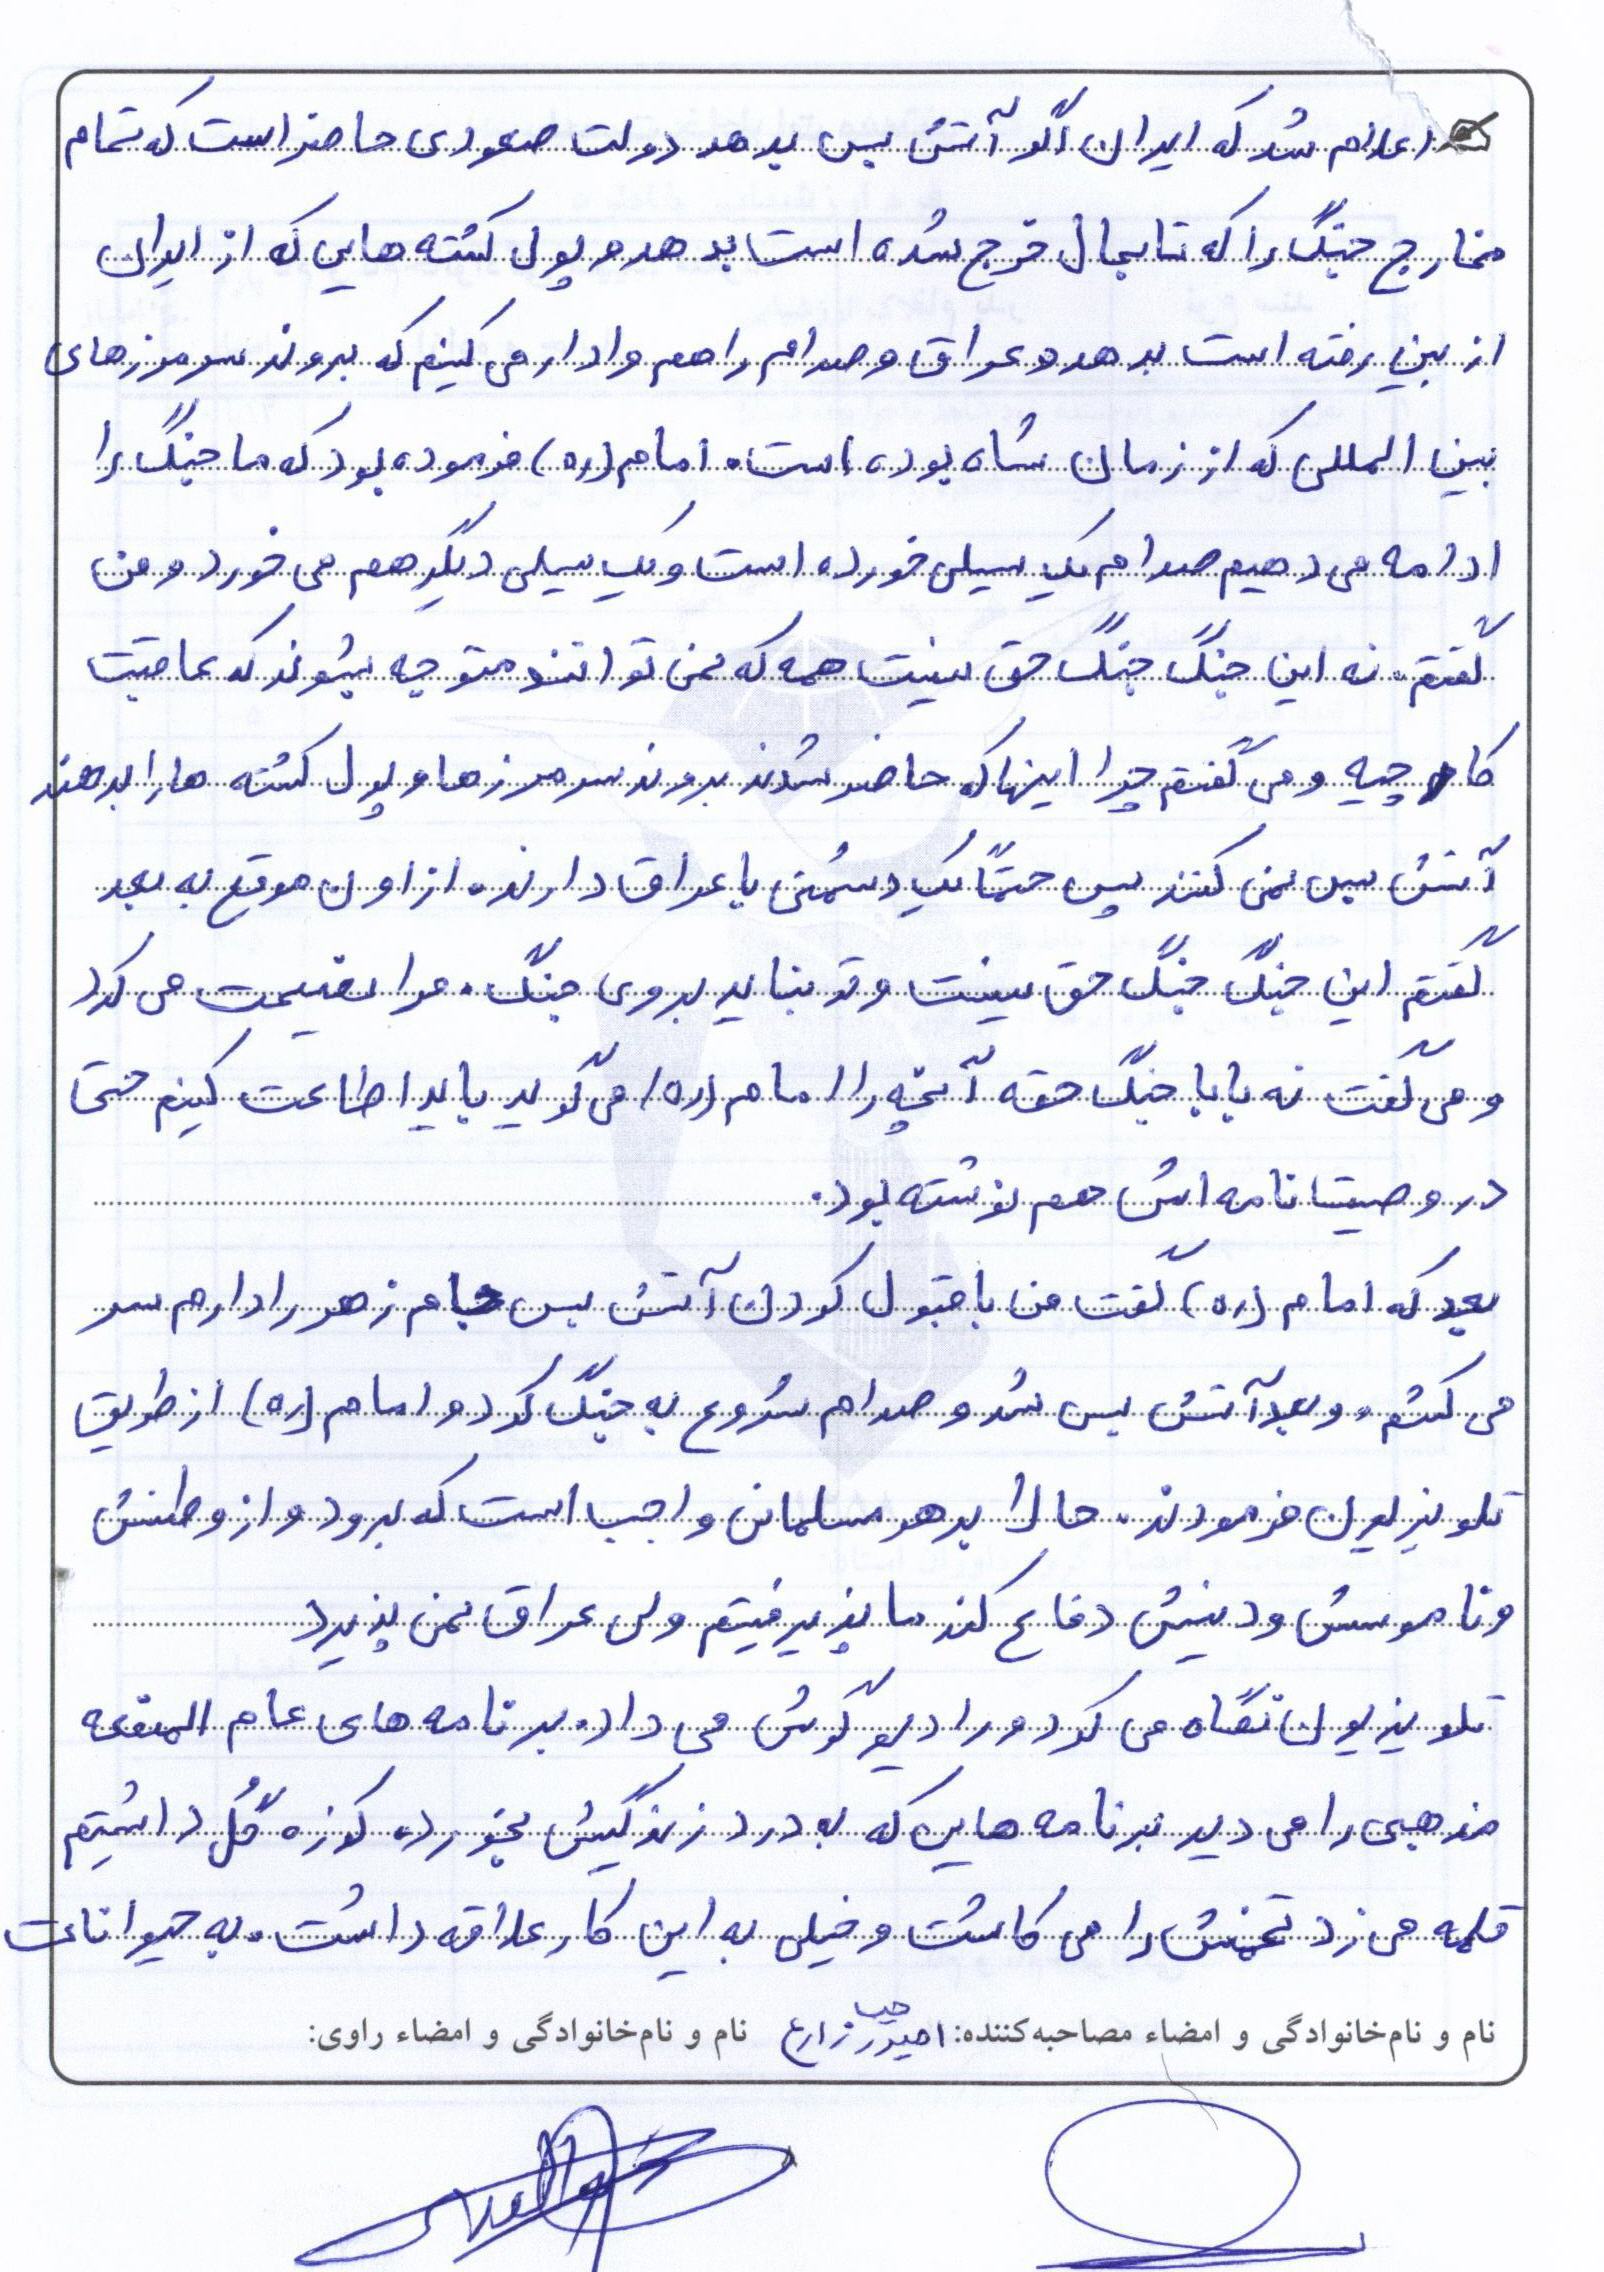 اعلام شد که ایران اگر آتش بس بدهد دولت صعودی حاضر است که تمام
مخارج جنگ را که تابحال خرج شده است بدهد و پول کشته هایی که از ایران
از بین رفته است بدهد و عراق و صدام را هم وادار می کنیم که بروند سر مرزهای
بین المللی که از زمان شاه بوده است. امام (ره) فرموده بود که ما جنگ را
ادامه می دهیم صدام یک سیلی خورده است و یک سیلی دیگر هم می خورد و من
گفتم. نه این جنگ جنگ حق نیست همه که نمی توانند متوجه بشوند که عاقبت
کار چیه و می گفتم چرا اینها که حاضر شدند بروند سر مرزها و پول کشته ها را بدهند
آتش بس نمی کنند پس حتماً یک دشمنی با عراق دارند. از اون موقع به بعد
گفتم این جنگ جنگ حق نیست و تو نباید بروی جنگ. مرا نصیحت می کرد
و می گفت نه بابا جنگ حقه آنچه را امام (ره) می گوید باید اطاعت کنیم حتی
در وصیتنامه اش هم نوشته بود.
بعد که امام (ره) گفت من با قبول کردن آتش بس جام زهر را دارم سر
می کشم. و بعد آتش بس شد و صدام شروع به جنگ کرد و امام (ره) از طریق
تلویزیون فرمودند. حالا بر هر مسلمانی واجب است که برود و از وطنش
و ناموسش و دینش دفاع کند ما پذیرفتیم ولی عراق نمی پذیرد
تلویزیون نگاه می کرد و رادیو گوش می داد. برنامه های عام المنفعه
مذهبی را می دید نبرنامه هایی که به درد زندگیش بخورد. کوزه گل داشتیم
قلمه می زد تخمش را می کاشت و خیلی به این کار علاقه داشت. به حیوانات
نام و نام‌خانوادگی و امضاء مصاحبه‌کننده: زارع نام و نام‌خانوادگی و امضاء راوی: